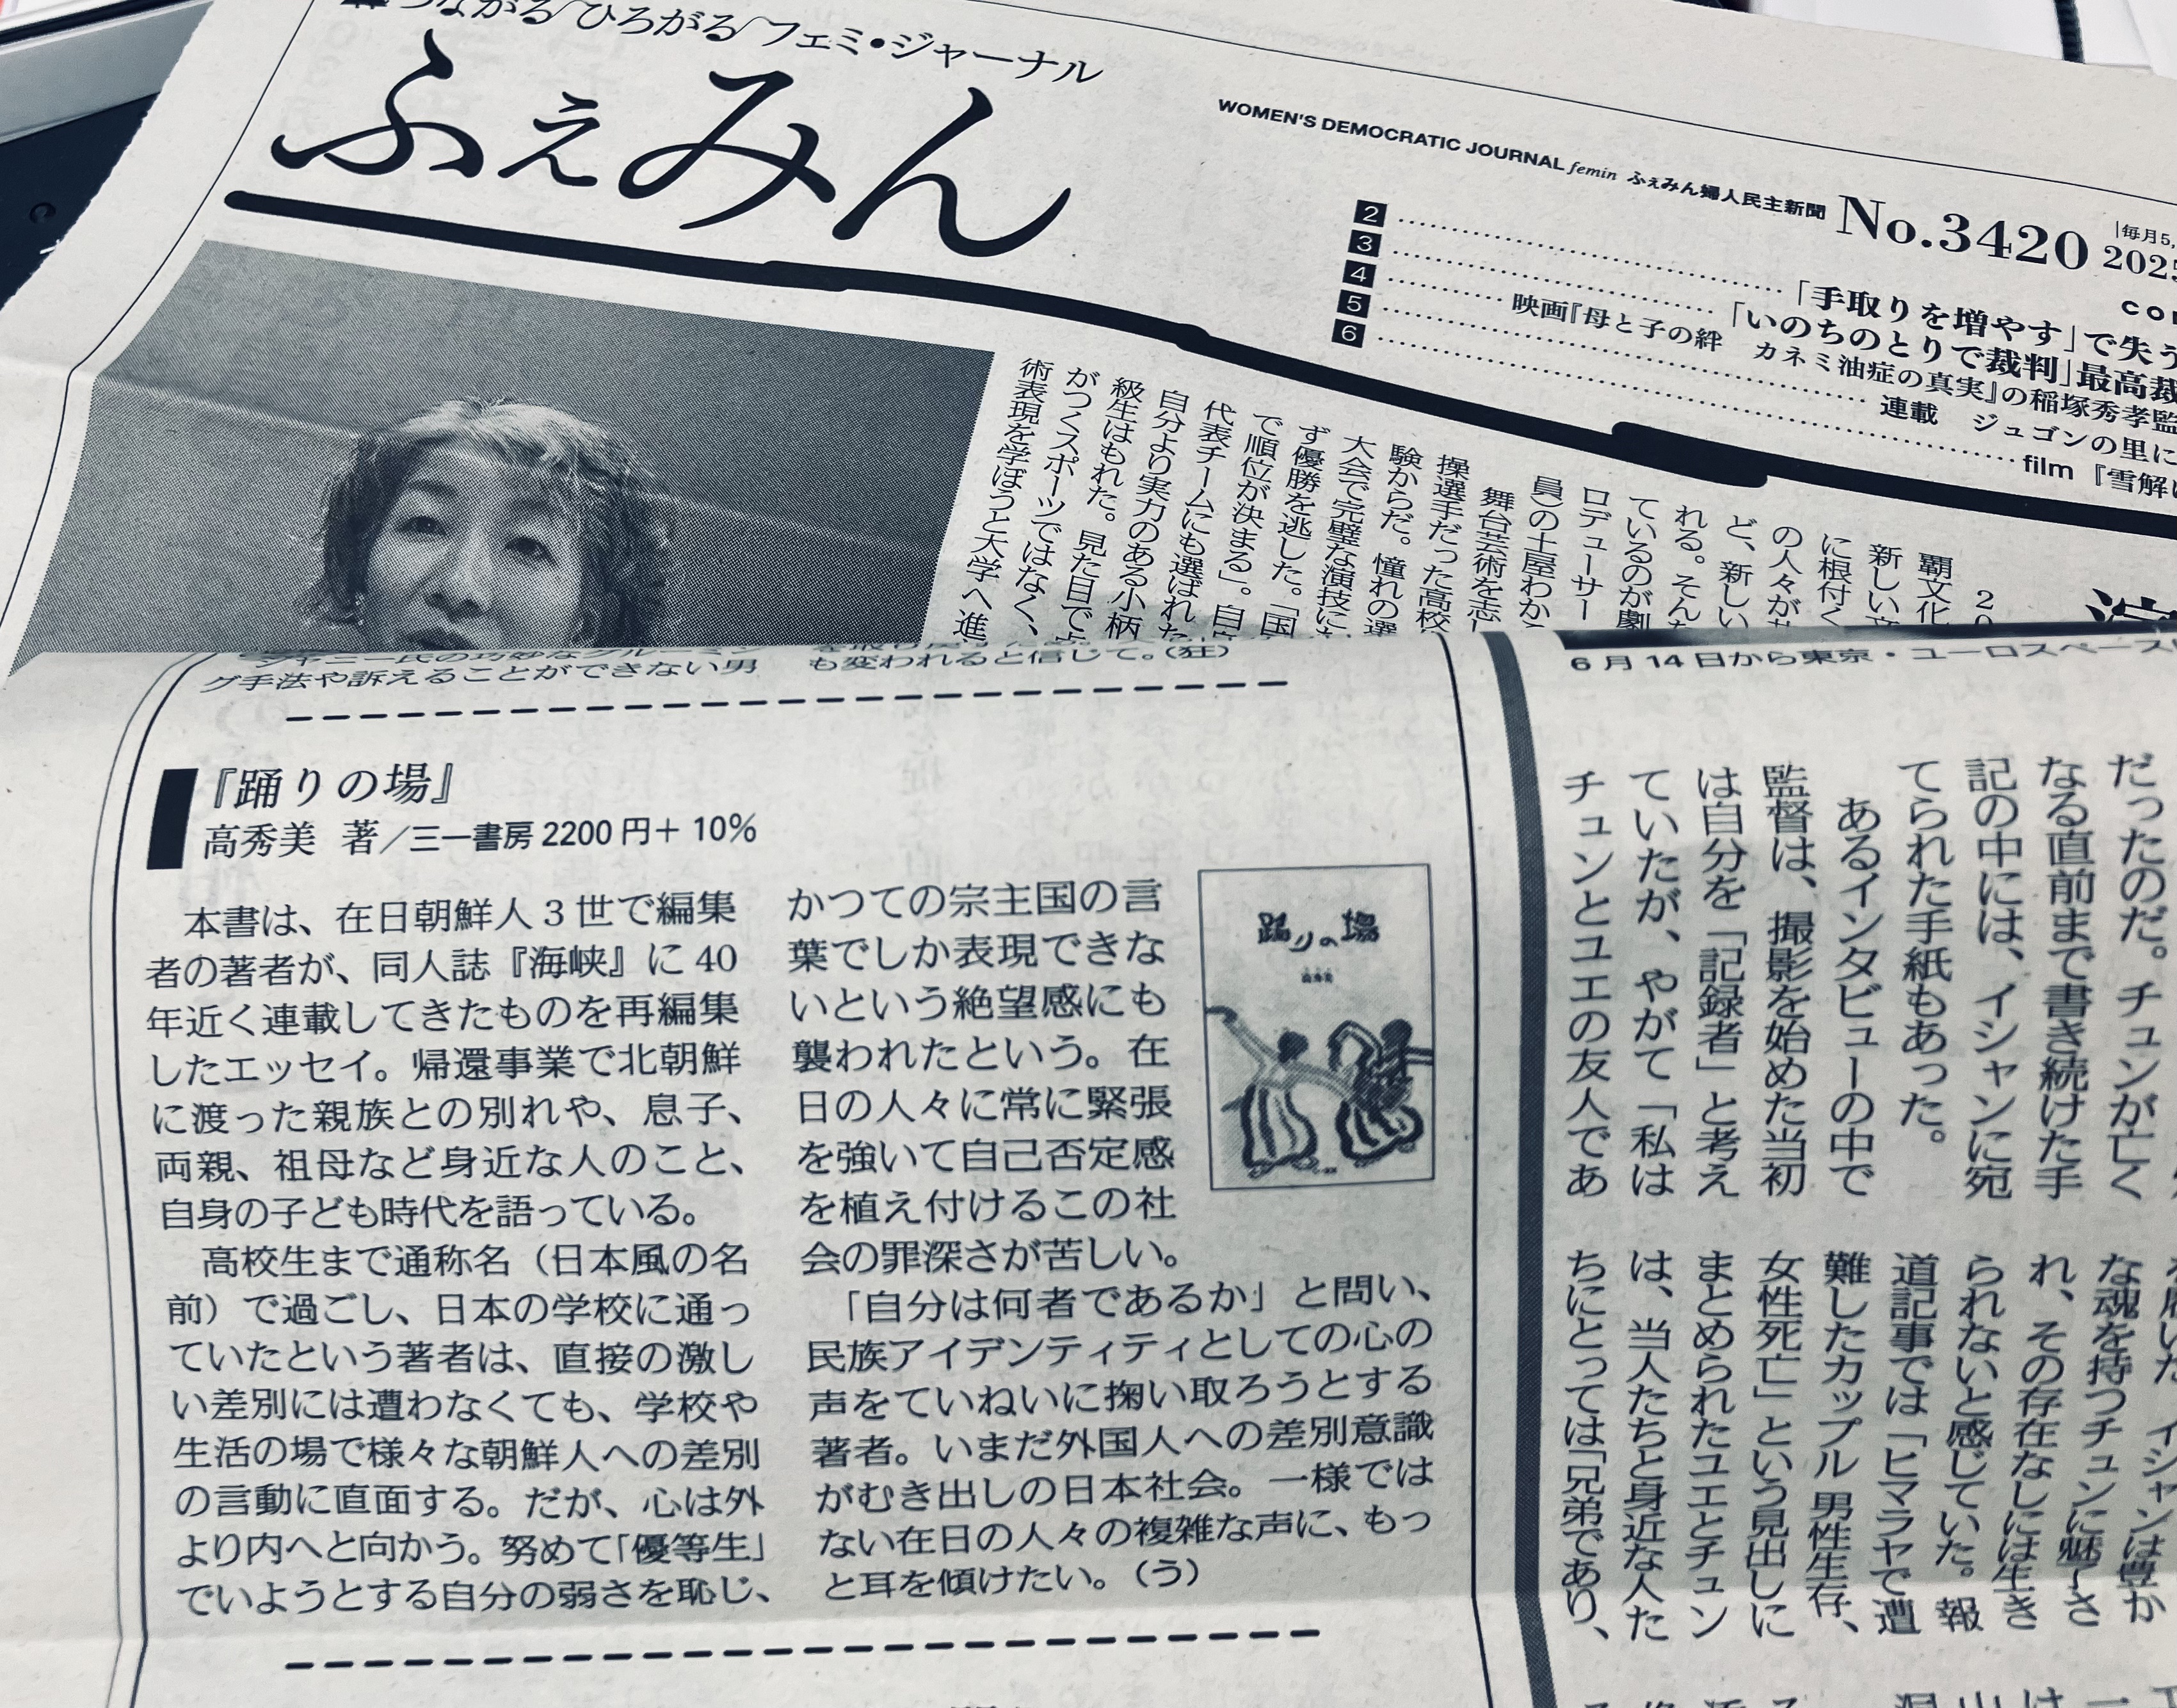 つながる／ひろがる／フェミ・ジャーナル
ふぇみん
WOMEN'S DEMOCRATIC JOURNAL femin ふぇみん婦人民主新聞 No.3420
毎月5,
2025
2 「手取りを増やす」で失う
3 「いのちのとりで裁判」最高裁
4 映画『母と子の絆 カネミ油症の真実』の稲塚秀孝監
5 連載 ジュゴンの里に
6 film 『雪解け
覇文化
新しい文
に根付く
の人々が
ど、新しい
れる。そん
ているのが劇
ロデューサー
員）の土屋わか
舞台芸術を志し
操選手だった高校
験からだ。憧れの選
大会で完璧な演技に
ず優勝を逃した。「国
で順位が決まる」。自
代表チームにも選ばれた
自分より実力のある小柄
級生はもれた。見た目で
がつくスポーツではなく、
術表現を学ぼうと大学へ進
グ手法や訴えることができない男
も変われると信じて。（狂）
『踊りの場』
高秀美 著／三一書房 2200 円＋ 10％
本書は、在日朝鮮人 3 世で編集
者の著者が、同人誌『海峡』に 40
年近く連載してきたものを再編集
したエッセイ。帰還事業で北朝鮮
に渡った親族との別れや、息子、
両親、祖母など身近な人のこと、
自身の子ども時代を語っている。
高校生まで通称名（日本風の名
前）で過ごし、日本の学校に通っ
ていたという著者は、直接の激し
い差別には遭わなくても、学校や
生活の場で様々な朝鮮人への差別
の言動に直面する。だが、心は外
より内へと向かう。努めて「優等生」
でいようとする自分の弱さを恥じ、
かつての宗主国の言
葉でしか表現できな
いという絶望感にも
襲われたという。在
日の人々に常に緊張
を強いて自己否定感
を植え付けるこの社
会の罪深さが苦しい。
「自分は何者であるか」と問い、
民族アイデンティティとしての心の
声をていねいに掬い取ろうとする
著者。いまだ外国人への差別意識
がむき出しの日本社会。一様では
ない在日の人々の複雑な声に、もっ
と耳を傾けたい。（う）
踊りの場
6 月 14 日から東京・ユーロスペース
だったのだ。チュンが亡く
なる直前まで書き続けた手
記の中には、イシャンに宛
てられた手紙もあった。
あるインタビューの中で
監督は、撮影を始めた当初
は自分を「記録者」と考え
ていたが、やがて「私は
チュンとユエの友人であ
な魂を持つチュンに魅さ
れ、その存在なしには生き
られないと感じていた。報
道記事では「ヒマラヤで遭
難したカップル 男性生存、
女性死亡」という見出しに
まとめられたユエとチュン
は、当人たちと身近な人た
ちにとっては「兄弟であり、